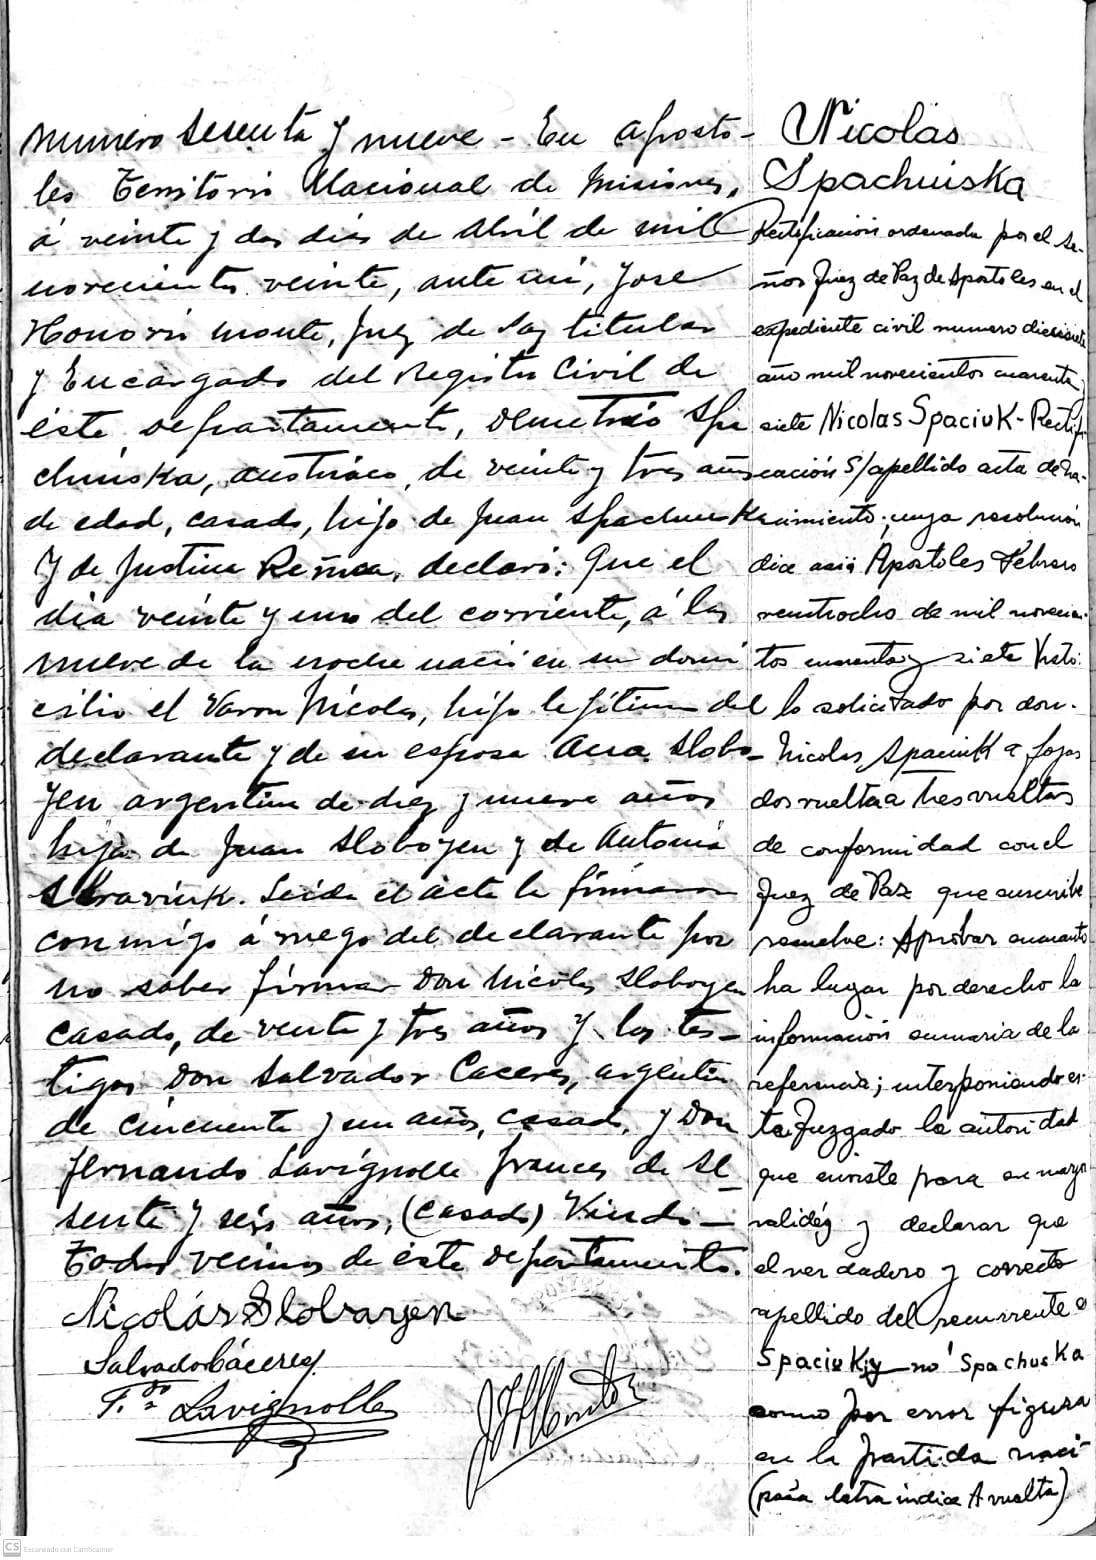 Numero sesenta y nueve - En Aposto-
les Territorio Nacional de Misiones,
á veinte y dos dias de Abril de mil
novecientos veinte, ante mi, Jose
Honorio Monte, Juez de Paz titular
y Encargado del Registro Civil de
éste departamento, Demetrio Spa
chuiska, austriaco, de veinte y tres años
de edad, casado, hijo de Juan Spachuiska
y de Justina declaró: Que el
dia veinte y uno del corriente, á las
nueve de la noche nació en su domi
cilio el Varon Nicolas, hijo legitimo del
declarante y de su esposa Ana Slobo-
yen argentina de diez y nueve años
hija de Juan Sloboyen y de Antonia
Leida el acta la firmaron
conmigo á ruego del declarante por
no saber firmar Don Nicolas Sloboyen
casado, de veinte y tres años y los tes-
tigos Don Salvador Caceres, argentino
de cincuenta y un años, casado, y Don
Fernando Lavignolle frances de se
senta y seis años, (casado) Viudo-
Todos vecinos de éste departamento.
Nicolás Slobargen
Salvador Cáceres
F.do Lavignolle
Nicolas
Spachuiska
Rectificación ordenada por el se-
ñor Juez de Paz de Apostoles en el
expediente civil numero diecisiete
año mil novecientos cuarenta y
siete Nicolas Spaciuk - Rectifi
cación s/apellido acta de na-
cimiento; cuya resolución
dice asi: Apostoles Febrero
veintiocho de mil novecien-
tos cuarenta y siete Visto:
lo solicitado por don.
Nicolas Spaciuk a fojas
dos vuelta a tres vueltas
de conformidad con el
Juez de Paz que suscribe
resuelve: Aprobar encuanto
ha lugar por derecho la
información sumaria de la
referencia; interponiendo es-
te Juzgado la autoridad
que enviste para su mayor
validéz y declarar que
el verdadero y correcto
apellido del recurrente es
Spaciuk y no Spachuska
como por error figura
en la partida naci-
(pasa letra indice A vuelta)
CS Escaneado con CamScanner